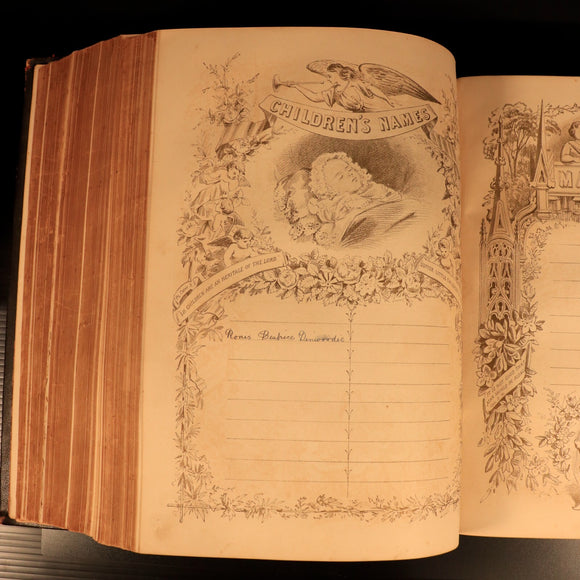 CHILDREN'S NAMES
CHILDREN ARE AN HERITAGE OF THE LORD
Beatrice Dinwoodie
M